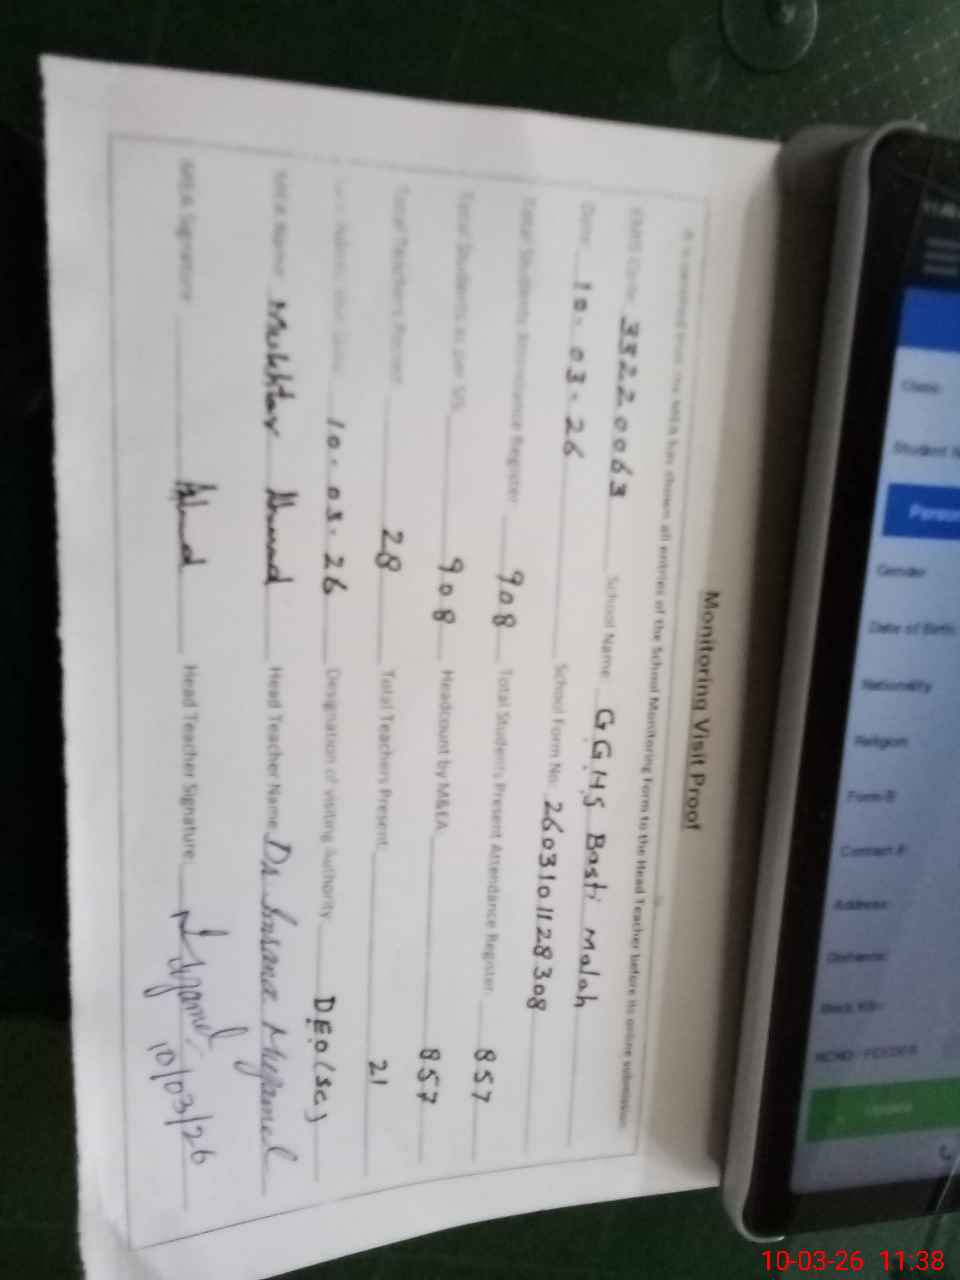 Monitoring Visit Proof
It is certified that the MEA has shown all entries of the School Monitoring Form to the Head Teacher before its online submission.
EMIS Code 33220063 School Name GGHS Basti Malah
Date 10.03.26 School Form No. 2603101128308
Total Students Attendance Register 908 Total Students Present Attendance Register 857
Total Students as per SIS 908 Headcount by M&EA 857
Total Teachers Posted 28 Total Teachers Present 21
10.03.26 Designation of visiting Authority DEO(SE)
MEA Name Mukhtar Ahmad Head Teacher Name Dr. Muzamal
MEA Signature Ahmad Head Teacher Signature
10/03/26
Class
Student N
Person
Gender
Date of Birth
Nationality
Religion
Form B
Contact #
Address
10-03-26 11:38